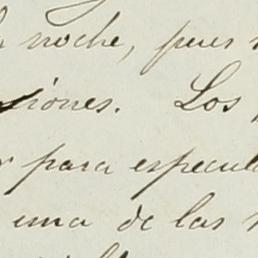 noche, pues
siones. Los
para especula
una de las